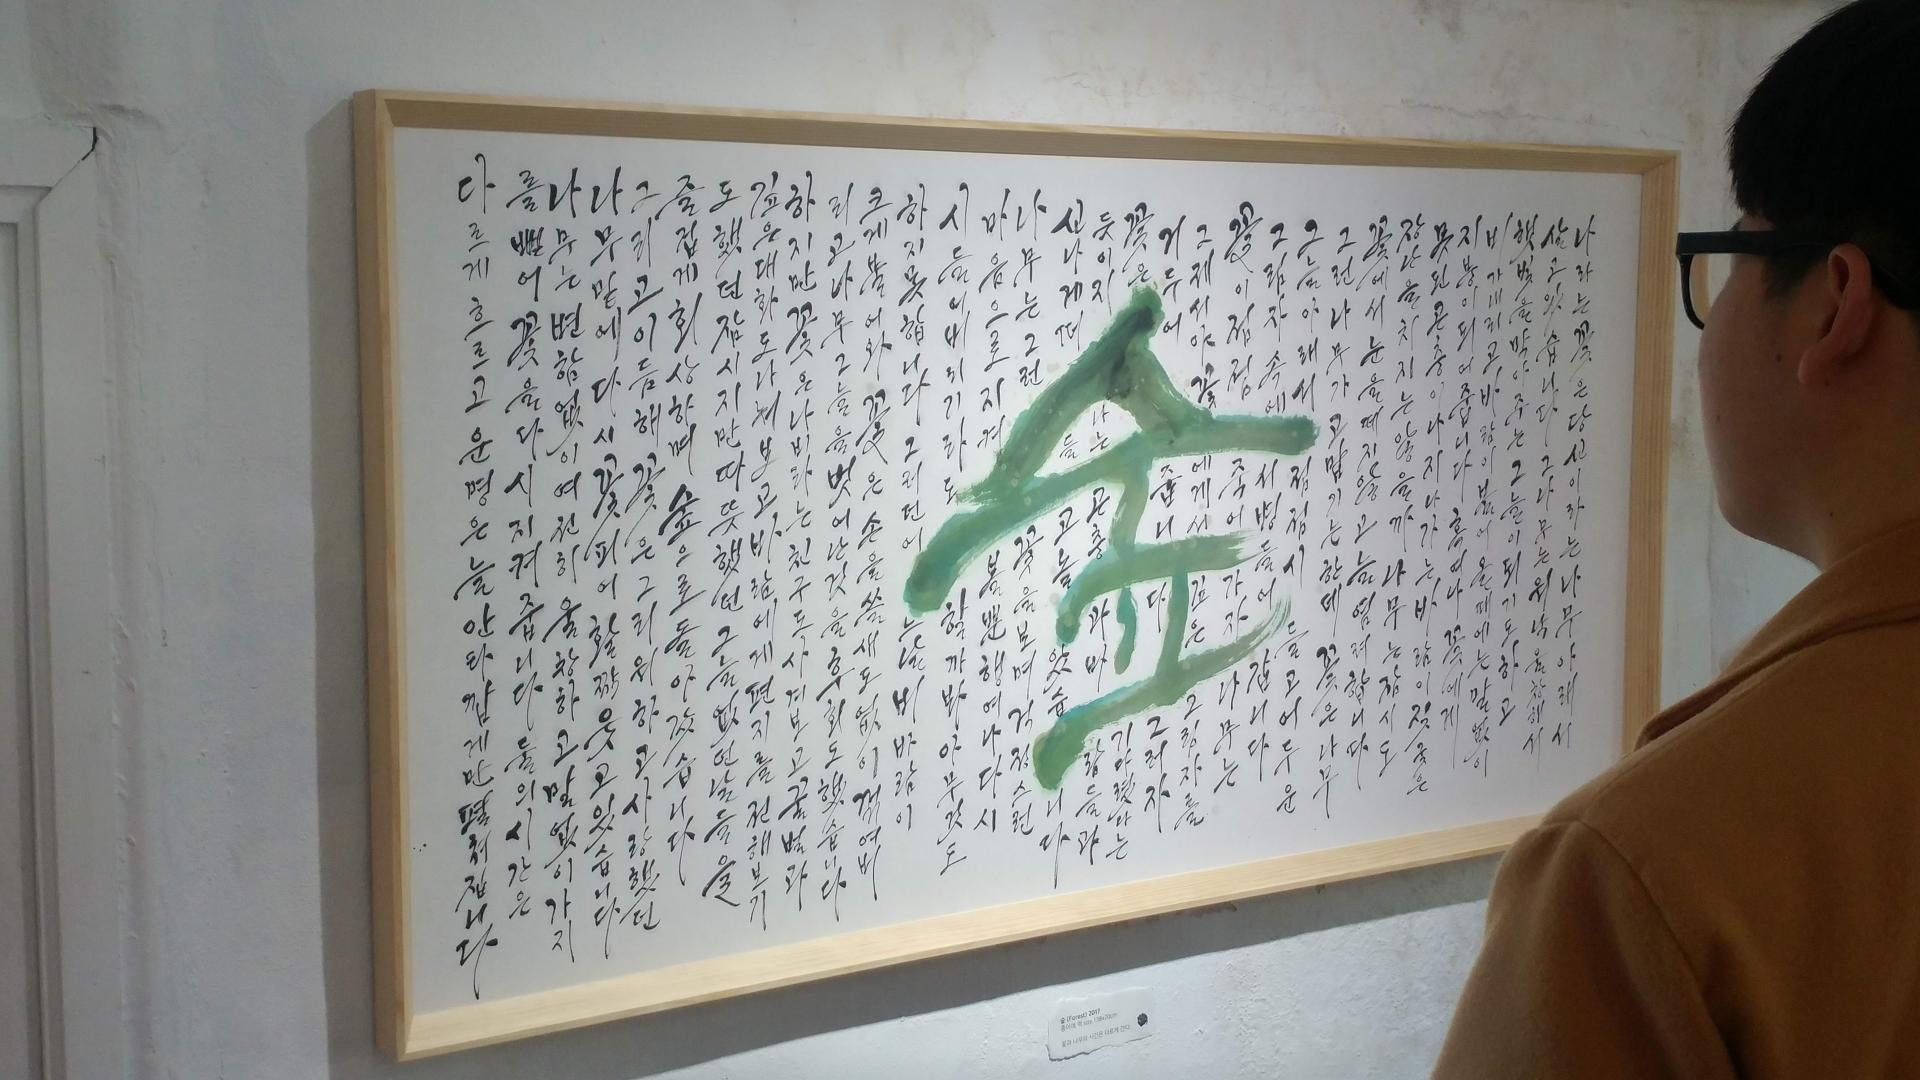 나라는 꽃은 당신이라는 나무 아래서
살고 있습니다 그 나무는 워낙 울창해서
햇빛을 막아주는 그늘이 되기도 하고
비가 내리고 바람이 불어 올 때에는 말없이
지붕이 되어 줍니다 혹여나 꽃에게
못된 곤충이나 지나가는 바람이 짓궂은
장난을 치지는 않을까 나무는 잠시도
꽃에서 눈을 떼지 않고 늘 염려합니다
그런 나무가 고맙기는 한데 꽃은 나무
그늘 아래서 점점 시들고 어두운
그림자 속에서 병들어 갑니다
꽃이 점점 죽어가자 나무는
그제서야 꽃에게서 깊은 그림자를
거두어 줍니다 그러자
꽃은 기다렸다는
듯이 지나는 곤충과 바람들과
신나게 떠들고 놀았습니다
나무는 그런 꽃을 보며 걱정스런
마음으로 지켜볼 뿐 행여나 다시
시들어버리기라도 할까봐 아무것도
하지 못합니다 그러던 어느날 비바람이
크게 불어와 꽃은 손을 쓸 새도 없이 꺾여버
리고 나무 그늘을 벗어난 것을 후회도 했습니다
하지만 꽃은 나비라는 친구도 사겨보고 꿀벌과
깊은 대화도 나눠보고 바람에게 편지를 전해보기
도 했던 잠시지만 따뜻했던 그늘 없던 날들을
즐겁게 회상하며 숲으로 돌아갔습니다
그리고 이듬해 꽃은 그리워하고 사랑했던
나무 밑에 다시 꽃피어 활짝 웃고 있습니다
나무는 변함없이 여전히 울창하고 말없이 가지
를 뻗어 꽃을 다시 지켜줍니다 둘의 시간은
다르게 흐르고 운명은 늘 안타깝게만 펼쳐집니다
숲
숲 (Forest) 2017
종이에 먹 size 138x70cm
꽃과 나무의 시간은 다르게 간다.